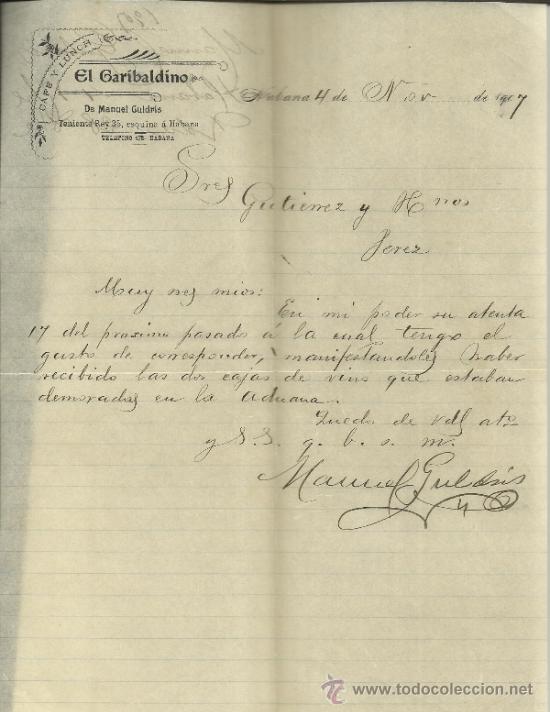 CAFE Y LUNCH
El Garibaldino
De Manuel Guldris
Teniente Rey 25, esquina á Habana
TELEFONO HABANA
Habana 4 de Nov de 1907
Sres Gutierrez y Hnos
Jerez
Muy sres mios:
En mi poder su atenta
17 del proximo pasado á la cual tengo el
gusto de corresponder, manifestandoles haber
recibido las dos cajas de vino que estaban
demoradas en la aduana.
Quedo de vds ato
y S. S. q. b. s. m.
Manuel Guldris
www.todocoleccion.net